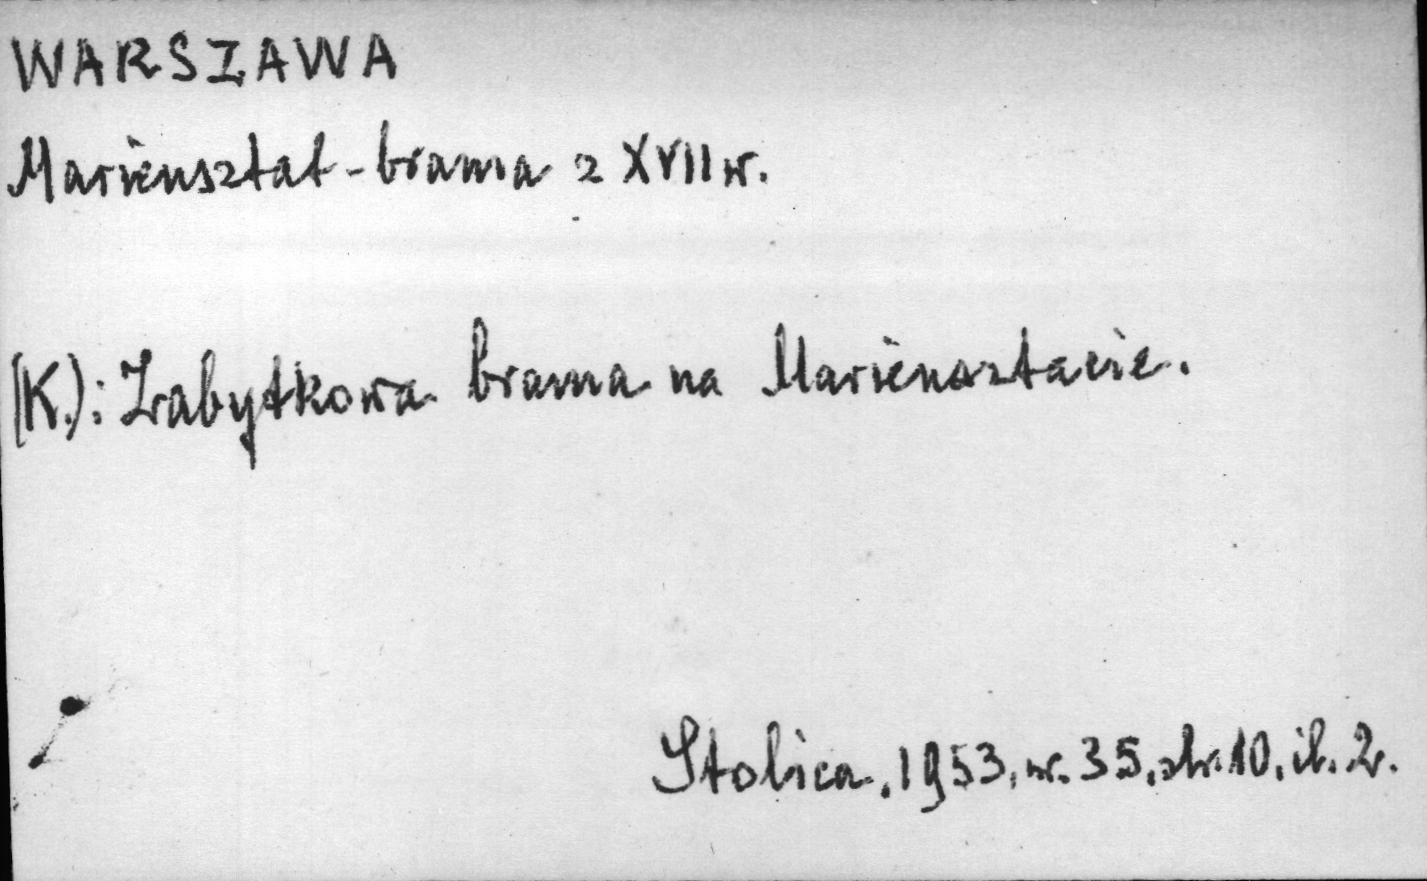 WARSZAWA
Mariensztat - brama z XVII w.
(K.): Zabytkowa brama na Mariensztacie.
Stolica, 1953, nr. 35, str. 10, il. 2.